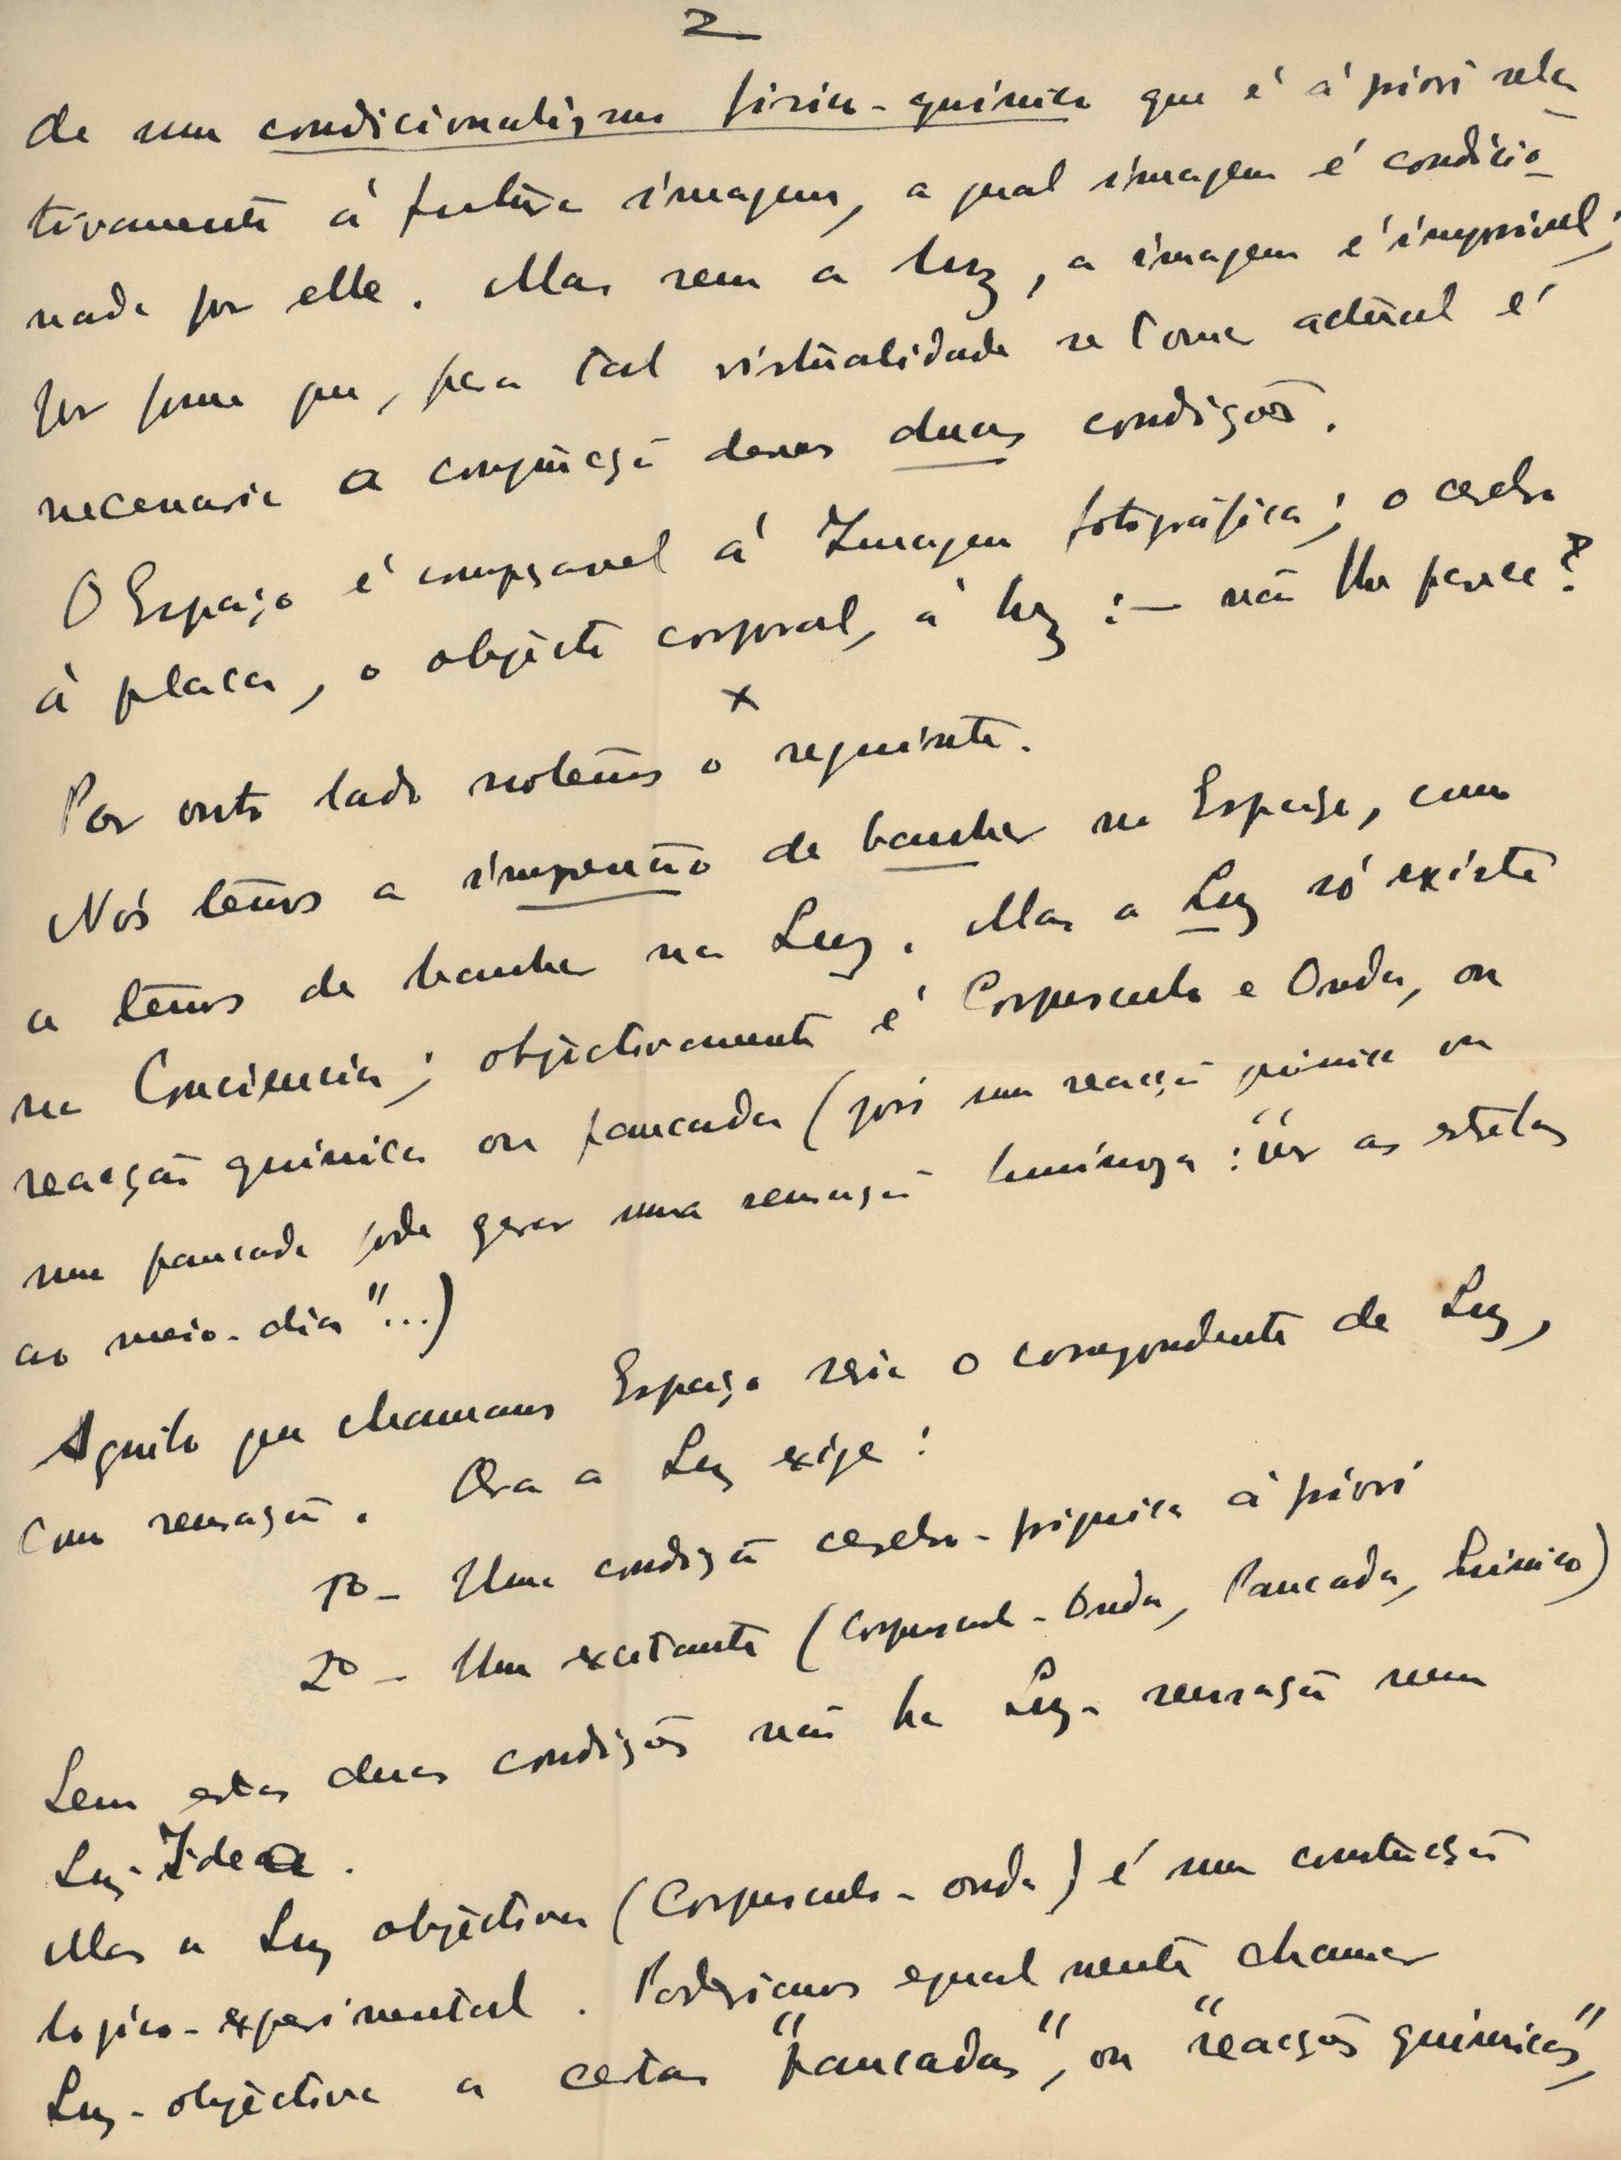 2
de um condicionalismo fisico-quimico que é á priori rela-
tivamente á futura imagem, a qual imagem é condicio-
nada por elle. Mas sem a luz, a imagem é impossivel;
por forma que, para tal virtualidade se torne actual é
necessaria a conjunção dessas duas condições.
O Espaço é comparavel á Imagem fotográfica; o cerebro
á placa, o objecto corporal, á luz :— não lhe parece?
x
Por outro lado notemos o seguinte.
Nós temos a impressão de banhar no Espaço, como
a temos de banhar na Luz. Mas a Luz só existe
na Conciencia; objectivamente é Corpusculo e Onda, ou
reacção quimica ou pancada (pois uma reacção quimica ou
uma pancada pode gerar uma sensação luminosa: "ver as estrelas
ao meio-dia"...)
Aquilo que chamamos Espaço seria o correspondente de Luz,
como sensação. Ora a Luz exige:
1º- Uma condição cerebro-psiquica á priori
2º- Um excitante (Corpusculo-Onda, Pancada, Quimico)
Sem estas duas condições não ha Luz-sensação nem
Luz-Idea.
Mas a Luz objectiva (Corpusculo-onda) é uma construcção
logico-experimental. Poderiamos egualmente chamar
Luz-objectiva a certas "pancadas", ou "reacções quimicas",